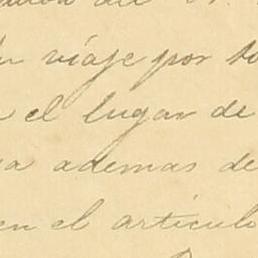 viaje por
el lugar de
ademas de
en el articulo